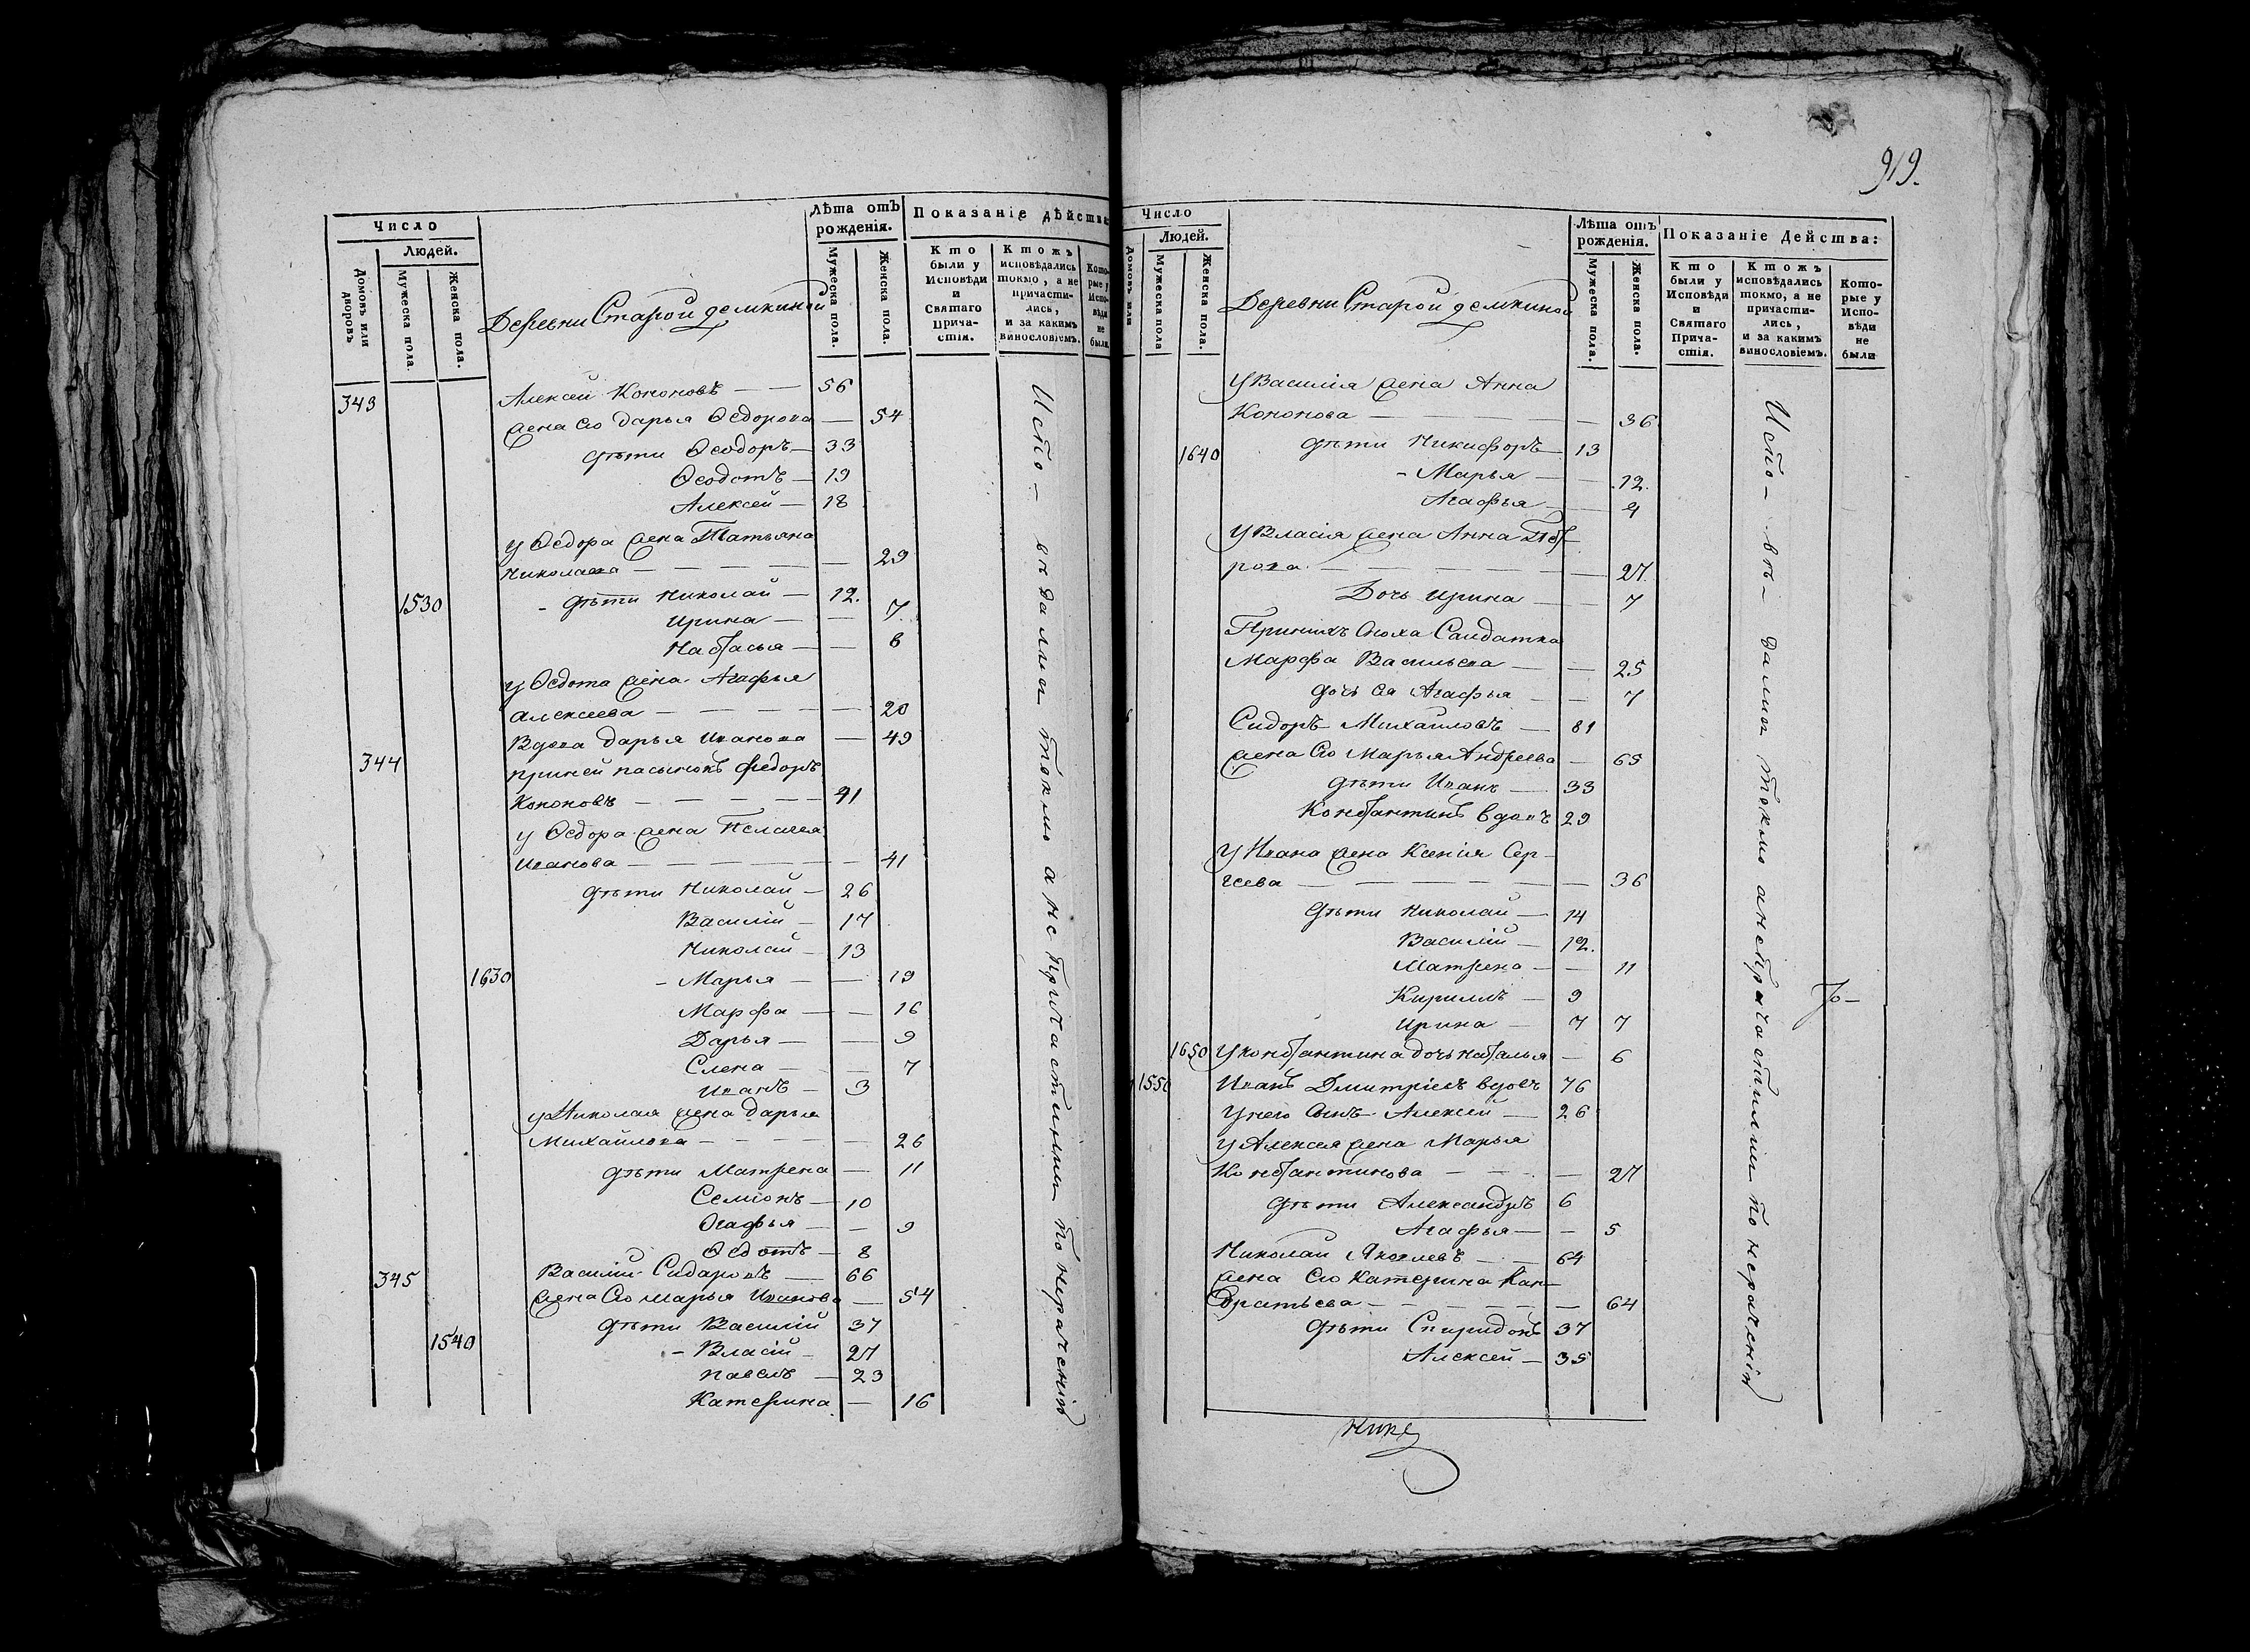 Число
Людей.
Домовъ или дворовъ
Мужеска пола.
Женска пола.
Деревни Старой демкиной
Лѣта отъ рожденія.
Мужеска пола.
Женска пола.
Показаніе дѣйства
Кто были у Исповѣди и Святаго Прича-стія.
Ктожъ исповѣдались токмо, а не причасти-лись, и за какимъ винословіемъ.
Кото-рые у Испо-вѣди не были.
343 Алексѣй Кононовъ — — 56
жена его Дарья Ѳедорова — 54
дѣти Ѳеодоръ — 33
Ѳеодотъ — 19
Алексей — 18
у Ѳедора жена Татьяна
Николаева — — — — — 29
1530 - дѣти Николай — 12.
Ирина — — 7.
Настасья — — 6
у Ѳедота жена Агафья
Алексеева — — — — — 20
344 Вдова Дарья Иванова — 49
при ней пасынокъ Федоръ
Кононовъ — — — — — 41
у Ѳедора жена Пелагея
Иванова — — — — — — 41
дѣти Николай — 26
Василій — 17
Николай — 13
1630 - Марья — — 19
Марфа — — 16
Дарья — — 9
Елена — — 7
Иванъ — 3
у Николая жена Дарья
Михайлова — — — — — 26
дѣти Матрена — 11
Семіонъ — 10
Огафья — — 9
Ѳедотъ — 8
345 Василій Сидаровъ — 66
жена его Марья Иванова — 54
дѣти Василій 37
1540 - Власій — 27
Павелъ — 23
Катерина — 16
Испо- вѣдались токмо а не причастились по нерачению
919.
Число
Людей.
Домовъ или
Мужеска пола
Женска пола.
Деревни Старой демкиной
Лѣта отъ рожденія.
Мужеска пола.
Женска пола.
Показаніе Действа:
Кто были у Исповѣди и Святаго Прича-стія.
Ктожъ исповѣдались токмо, а не причасти-лись, и за какимъ винословіемъ.
Кото-рые у Испо-вѣди не были
У Василія жена Анна
Кононова — — — — — 36
1640 дѣти Никифоръ — 13
- Марья — — 12.
Агафья — —
У Власія жена Анна Пет-
рова — — — — — — 27.
Дочь Ирина — — 7
При нихъ сноха Салдатка
Марфа Васильева — — 25
дочь ея Агафья — — 7
Сидоръ Михайловъ — 81
жена его Марья Андреева — 65
дѣти Иванъ — 33
Константинъ вдовъ 29
У Ивана жена Ксенія Сер-
геева — — — — — — 36
дѣти Николай — 14
Василій — 12.
Матрена — — 11
Кириллъ — 9
Ирина — 7 7
1650 У Константина дочь Наталья — 6
1550 Иванъ Дмитріевъ вдовъ 76
У него сынъ Алексей — 26
У Алексея жена Марья
Константинова — — — 27
дѣти Александръ 6
Агафья — — 5
Николай Яковлевъ — — 64
жена его Катерина Кан-
дратьева — — — — — — 64
дѣти Спиридонъ 37
Алексей — 35
Испо- вѣ- дались токмо а не причастились по нерачению